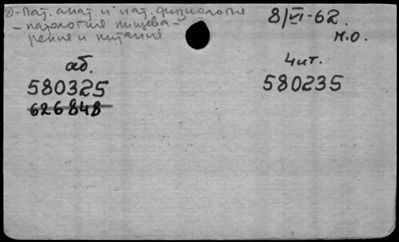 2)- Пат. анат и пат. физиология
- патология пищева-
рения и питания
8/VI-62.
М.О.
аб.
580325
626848
Чит.
580235